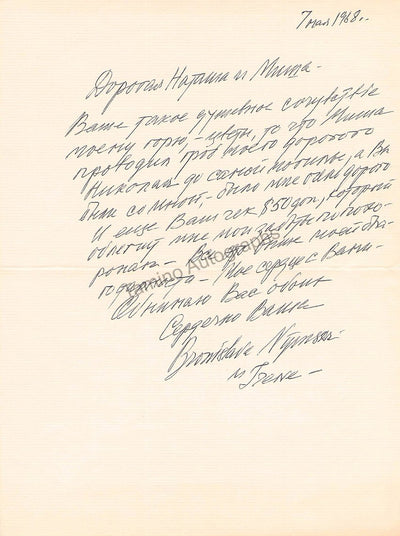 7 мая 1968..
Дорогая Наташа и Миша -
Ваше такое душевное сочувствие
моему горю, - цветы, то что Миша
проводил гроб моего дорогого
Николая до самой могилы, а Вы
были со мной, - было мне очень дорого
И еще Ваш чек $50 дол, который
облегчит мне мои по похо-
ронам - Вы моей бла-
- Мое сердце с Вами -
Обнимаю Вас обоих
Сердечно Ваша
Bronislava Nijinska
и Irene -
Tamino Autographs